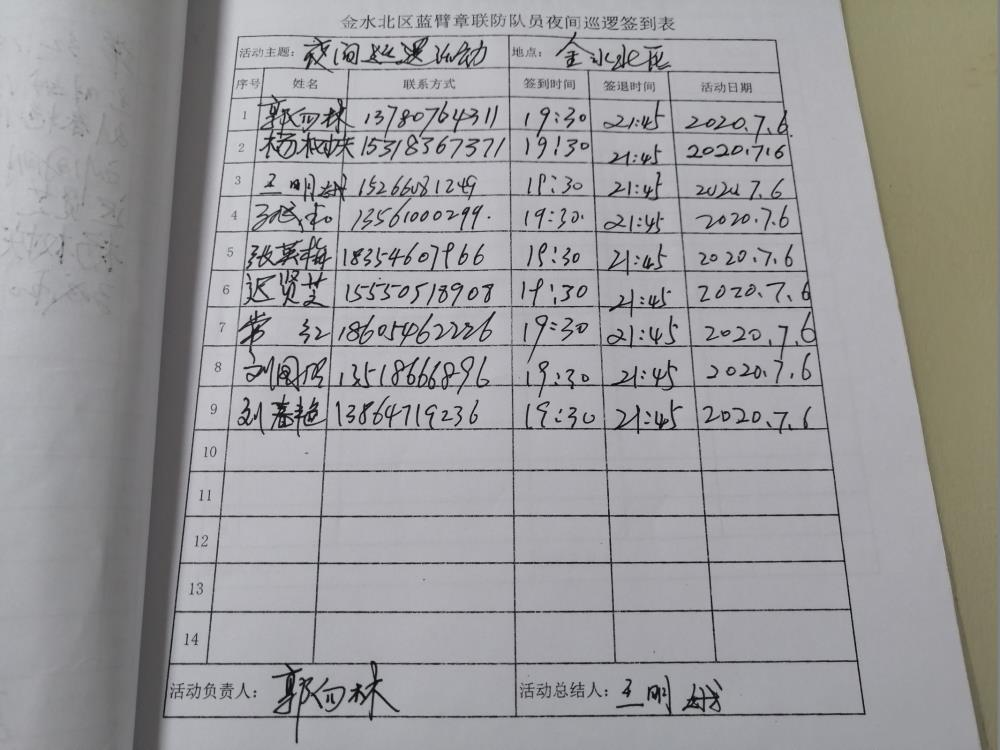 金水北区蓝臂章联防队员夜间巡逻签到表
活动主题：夜间巡逻活动 地点：金水北区
序号 姓名 联系方式 签到时间 签退时间 活动日期
1 郭向林 13780764311 19:30 21:45 2020.7.6
2 杨 15318367371 19:30 21:45 2020.7.6
3 王明娥 15266081249 19:30 21:45 2020.7.6
4 13561000299. 19:30. 21:45 2020.7.6
5 张英梅 18354607966 19:30 21:45 2020.7.6
6 迟贤芝 15550518908 19:30 21:45 2020.7.6
7 常红 18605462226 19:30 21:45 2020.7.6
8 刘国 13518666896 19:30 21:45 2020.7.6
9 刘春艳 13864719236 19:30 21:45 2020.7.6
10
11
12
13
14
活动负责人：郭向林 活动总结人：王明娥